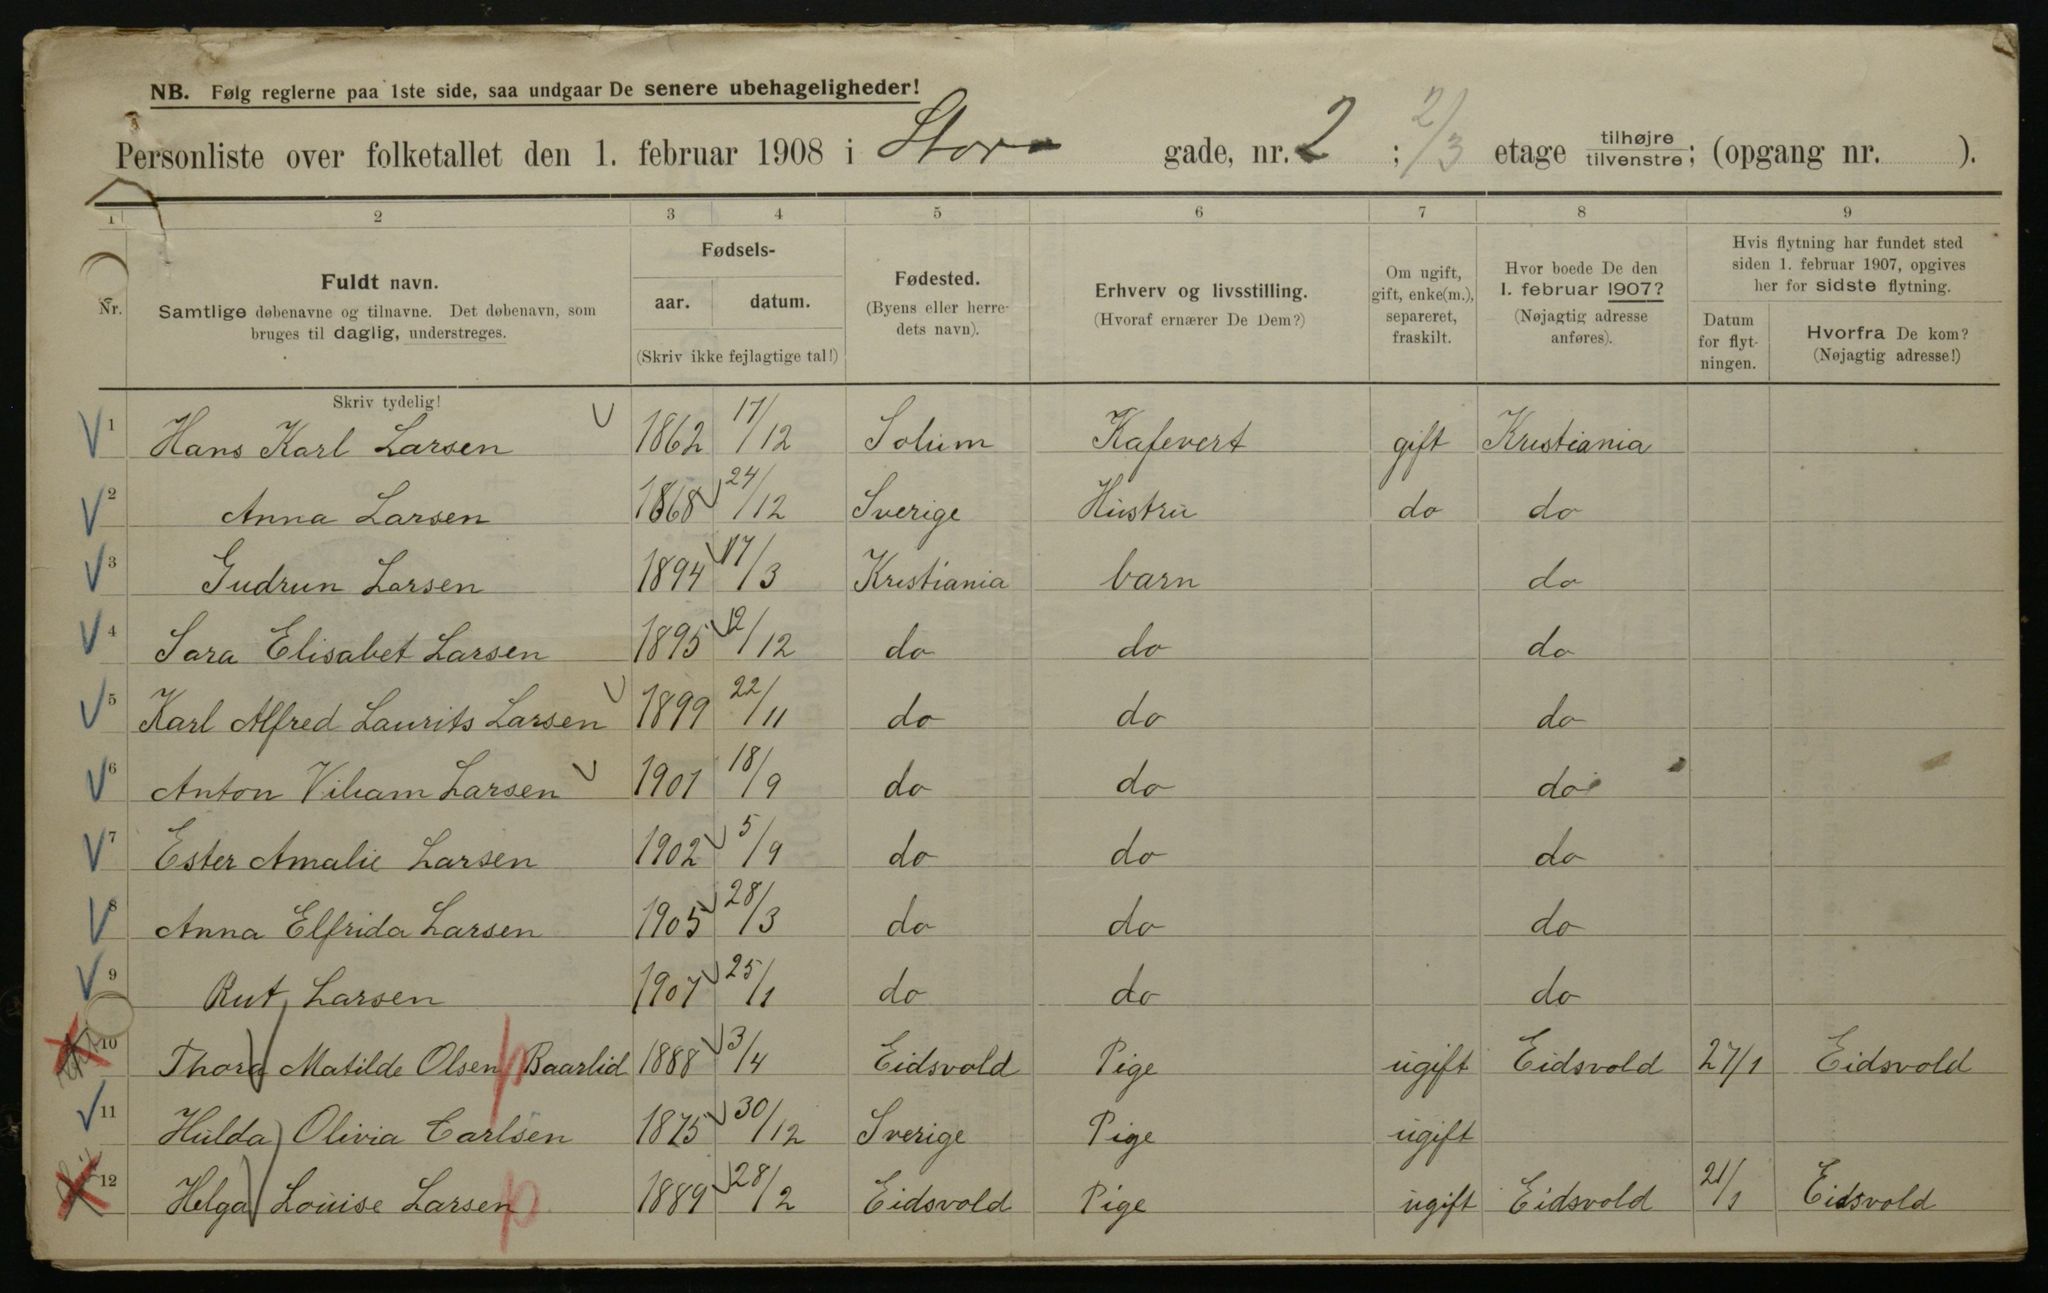 NB. Følg reglerne paa 1ste side, saa undgaar De senere ubehageligheder!
Personliste over folketallet den 1. februar 1908 i Stor- gade, nr. 2 ; 2/3 etage tilhøjre/tilvenstre; (opgang nr. ).
1 2 3 4 5 6 7 8 9
Nr.
Fuldt navn.
Samtlige døbenavne og tilnavne. Det døbenavn, som
bruges til daglig, understreges.
Skriv tydelig!
Fødsels-
aar. datum.
(Skriv ikke fejlagtige tal!)
Fødested.
(Byens eller herre-
dets navn).
Erhverv og livsstilling.
(Hvoraf ernærer De Dem?)
Om ugift,
gift, enke(m.),
separeret,
fraskilt.
Hvor boede De den
1. februar 1907?
(Nøjagtig adresse
anføres).
Hvis flytning har fundet sted
siden 1. februar 1907, opgives
her for sidste flytning.
Datum
for flyt-
ningen.
Hvorfra De kom?
(Nøjagtig adresse!)
1 Hans Karl Larsen 1862 17/12 Solum Kafevert gift Kristiania
2 Anna Larsen 1868 24/12 Sverige Hustru do do
3 Gudrun Larsen 1894 17/3 Kristiania barn do
4 Sara Elisabet Larsen 1895 12/12 do do do
5 Karl Alfred Laurits Larsen 1899 22/11 do do do
6 Anton Viliam Larsen 1901 18/9 do do do
7 Ester Amalie Larsen 1902 5/9 do do do
8 Anna Elfrida Larsen 1905 28/3 do do do
9 Rut Larsen 1907 25/1 do do do
10 Thora Matilde Olsen Baarlid 1888 3/4 Eidsvold Pige ugift Eidsvold 27/1 Eidsvold
11 Hulda Olivia Carlsen 1875 30/12 Sverige Pige ugift
12 Helga Louise Larsen 1889 28/2 Eidsvold Pige ugift Eidsvold 21/1 Eidsvold